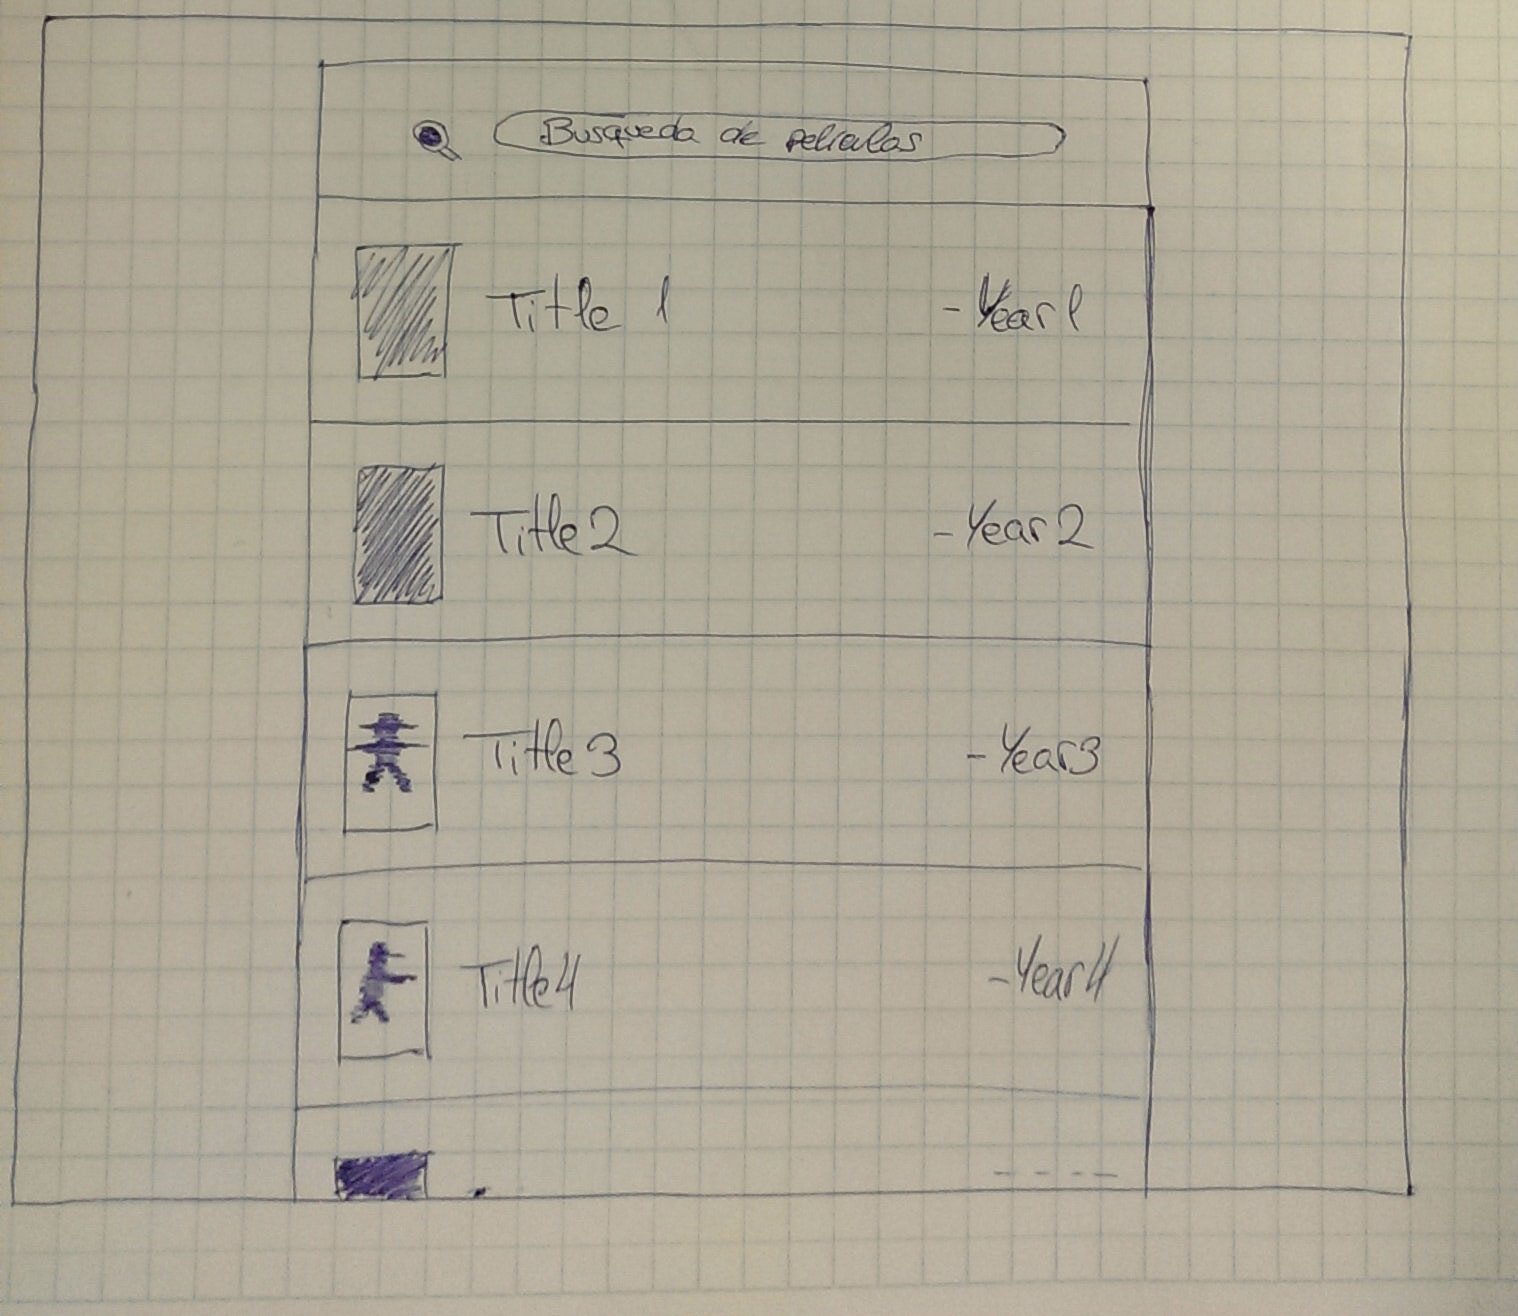 Busqueda de peliculas
Title 1 - Year 1
Title 2 - Year 2
Title 3 - Year 3
Title 4 - Year 4